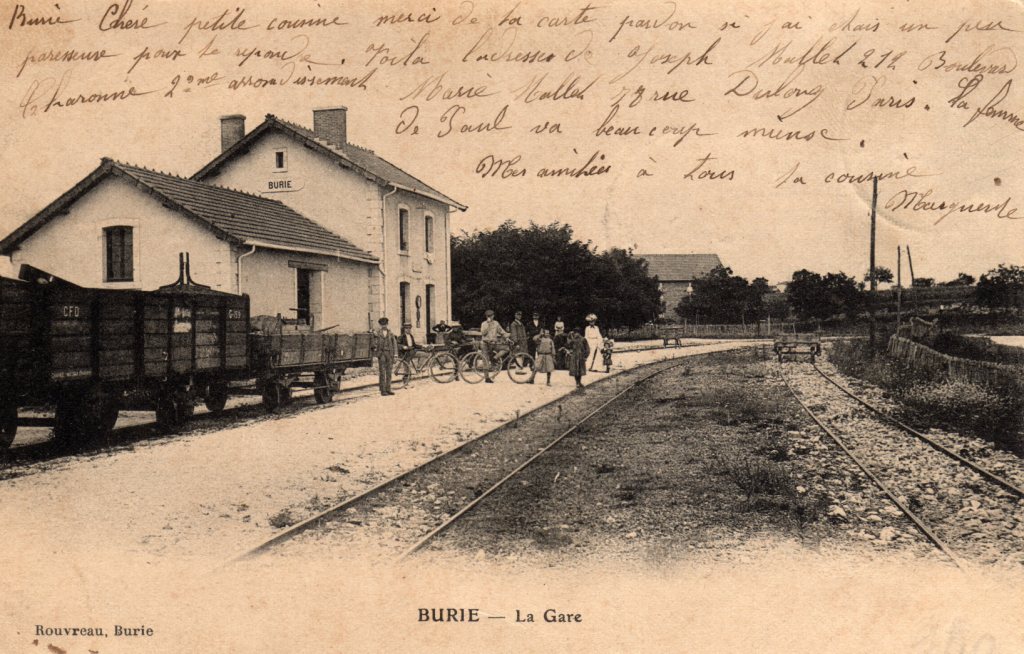 Burie Chéré petite cousine merci de ta carte pardon si j'ai étais un peu
paresseuse pour te repondre. Voila l'adresse de Joseph Mallet 212 Boulevard
Charonne 2ème arrondissement Marie Mallet rue Dulong Paris. La femme
de Paul va beaucoup mieuse.
Mes amitiées à tous ta cousine
Marguerite
BURIE
CFD
BURIE — La Gare
Rouvreau, Burie